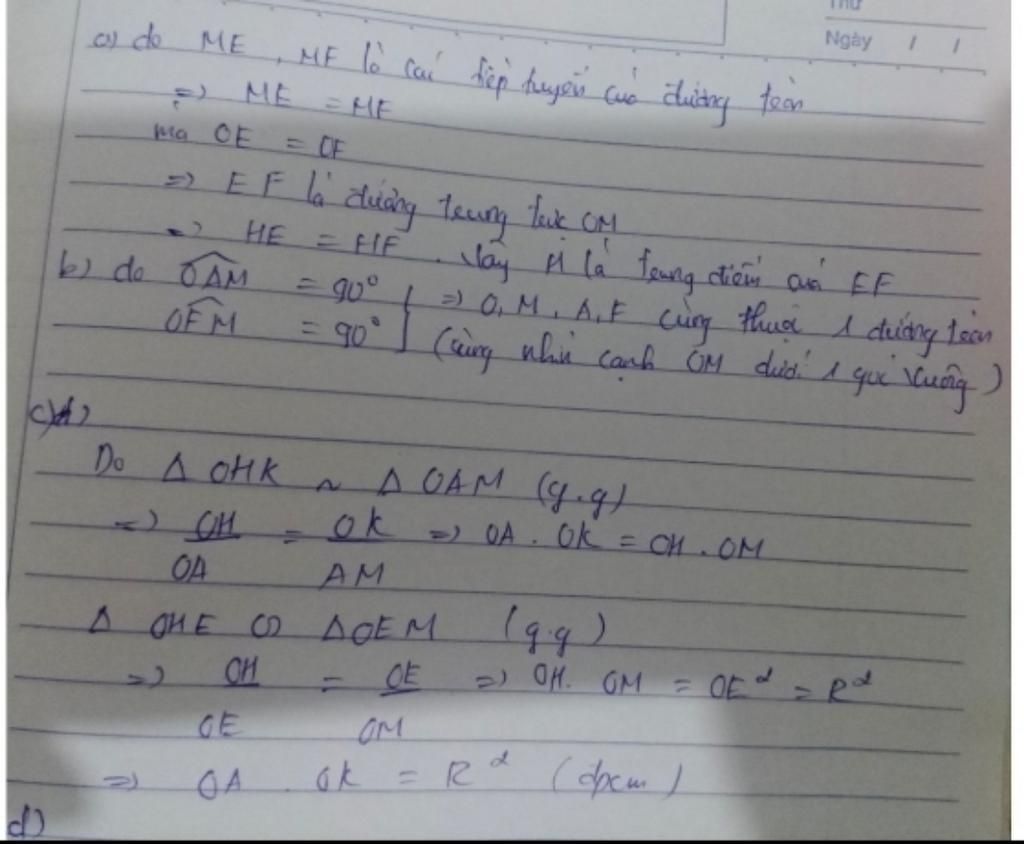 Thứ
Ngày / /
a) do ME, MF là các tiếp tuyến của đường tròn
=> ME = MF
mà OE = OF
=> EF là đường trung trực OM
=> HE = HF. Vậy H là trung điểm của EF
b) do OAM = 90°
OFM = 90° } => O, M, A, F cùng thuộc 1 đường tròn
(cùng nhìn cạnh OM dưới 1 góc vuông)
c)
Do Δ OHK ~ Δ OAM (g.g)
=> OH/OA = OK/AM => OA . OK = OH . OM
Δ OHE ∽ Δ OEM (g.g)
=> OH/OE = OE/OM => OH. OM = OE² = R²
=> OA . OK = R² (đpcm)
d)